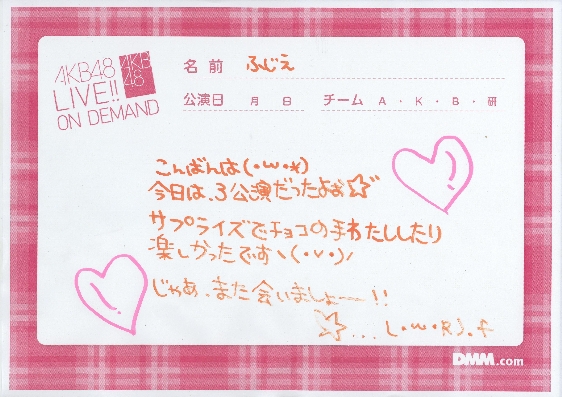 AKB48
LIVE!!
ON DEMAND
AKB
48
名前 ふじえ
公演日 月 日 チーム A・K・B・研
こんばんは(・w・*)
今日は、3公演だったよぉ☆
サプライズでチョコの手わたししたり
楽しかったですヽ(・v・)ノ
じゃあ、また会いましょー!!
DMM.com